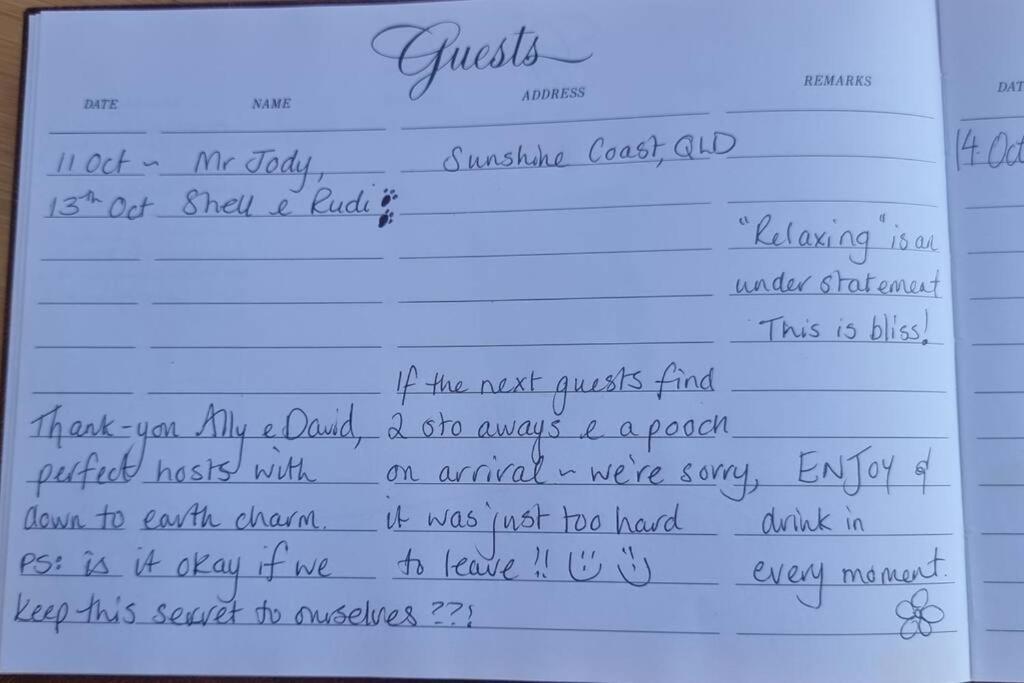 Guests
DATE NAME ADDRESS REMARKS DAT
11 Oct ~ Mr Jody, Sunshine Coast, QLD 14 Oct
13th Oct Shell e Rudi
"Relaxing" is an
under statement
This is bliss!
If the next guests find
2 sto aways e a pooch
on arrival ~ we're sorry,
it was just too hard
to leave !! ☺ ☺
Thank-you Ally e David,
perfect hosts with
down to earth charm.
PS: is it okay if we
keep this secret to ourselves ??!
ENJOY &
drink in
every moment.